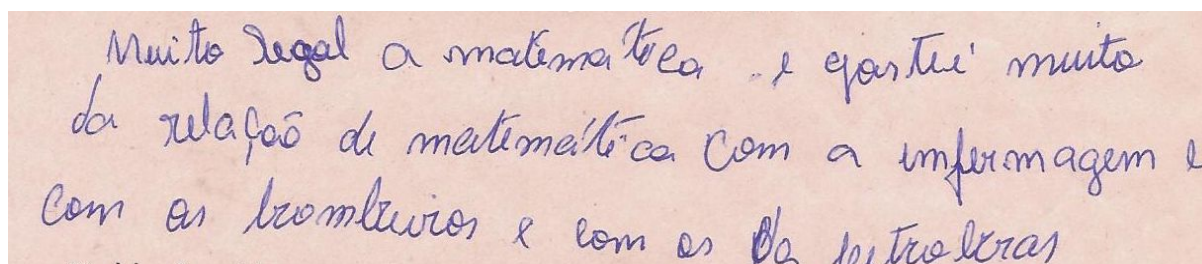 Muito legal a matemática e gostei muito
da relação de matemática com a infermagem e
com os bombeiros e com os da petrobras